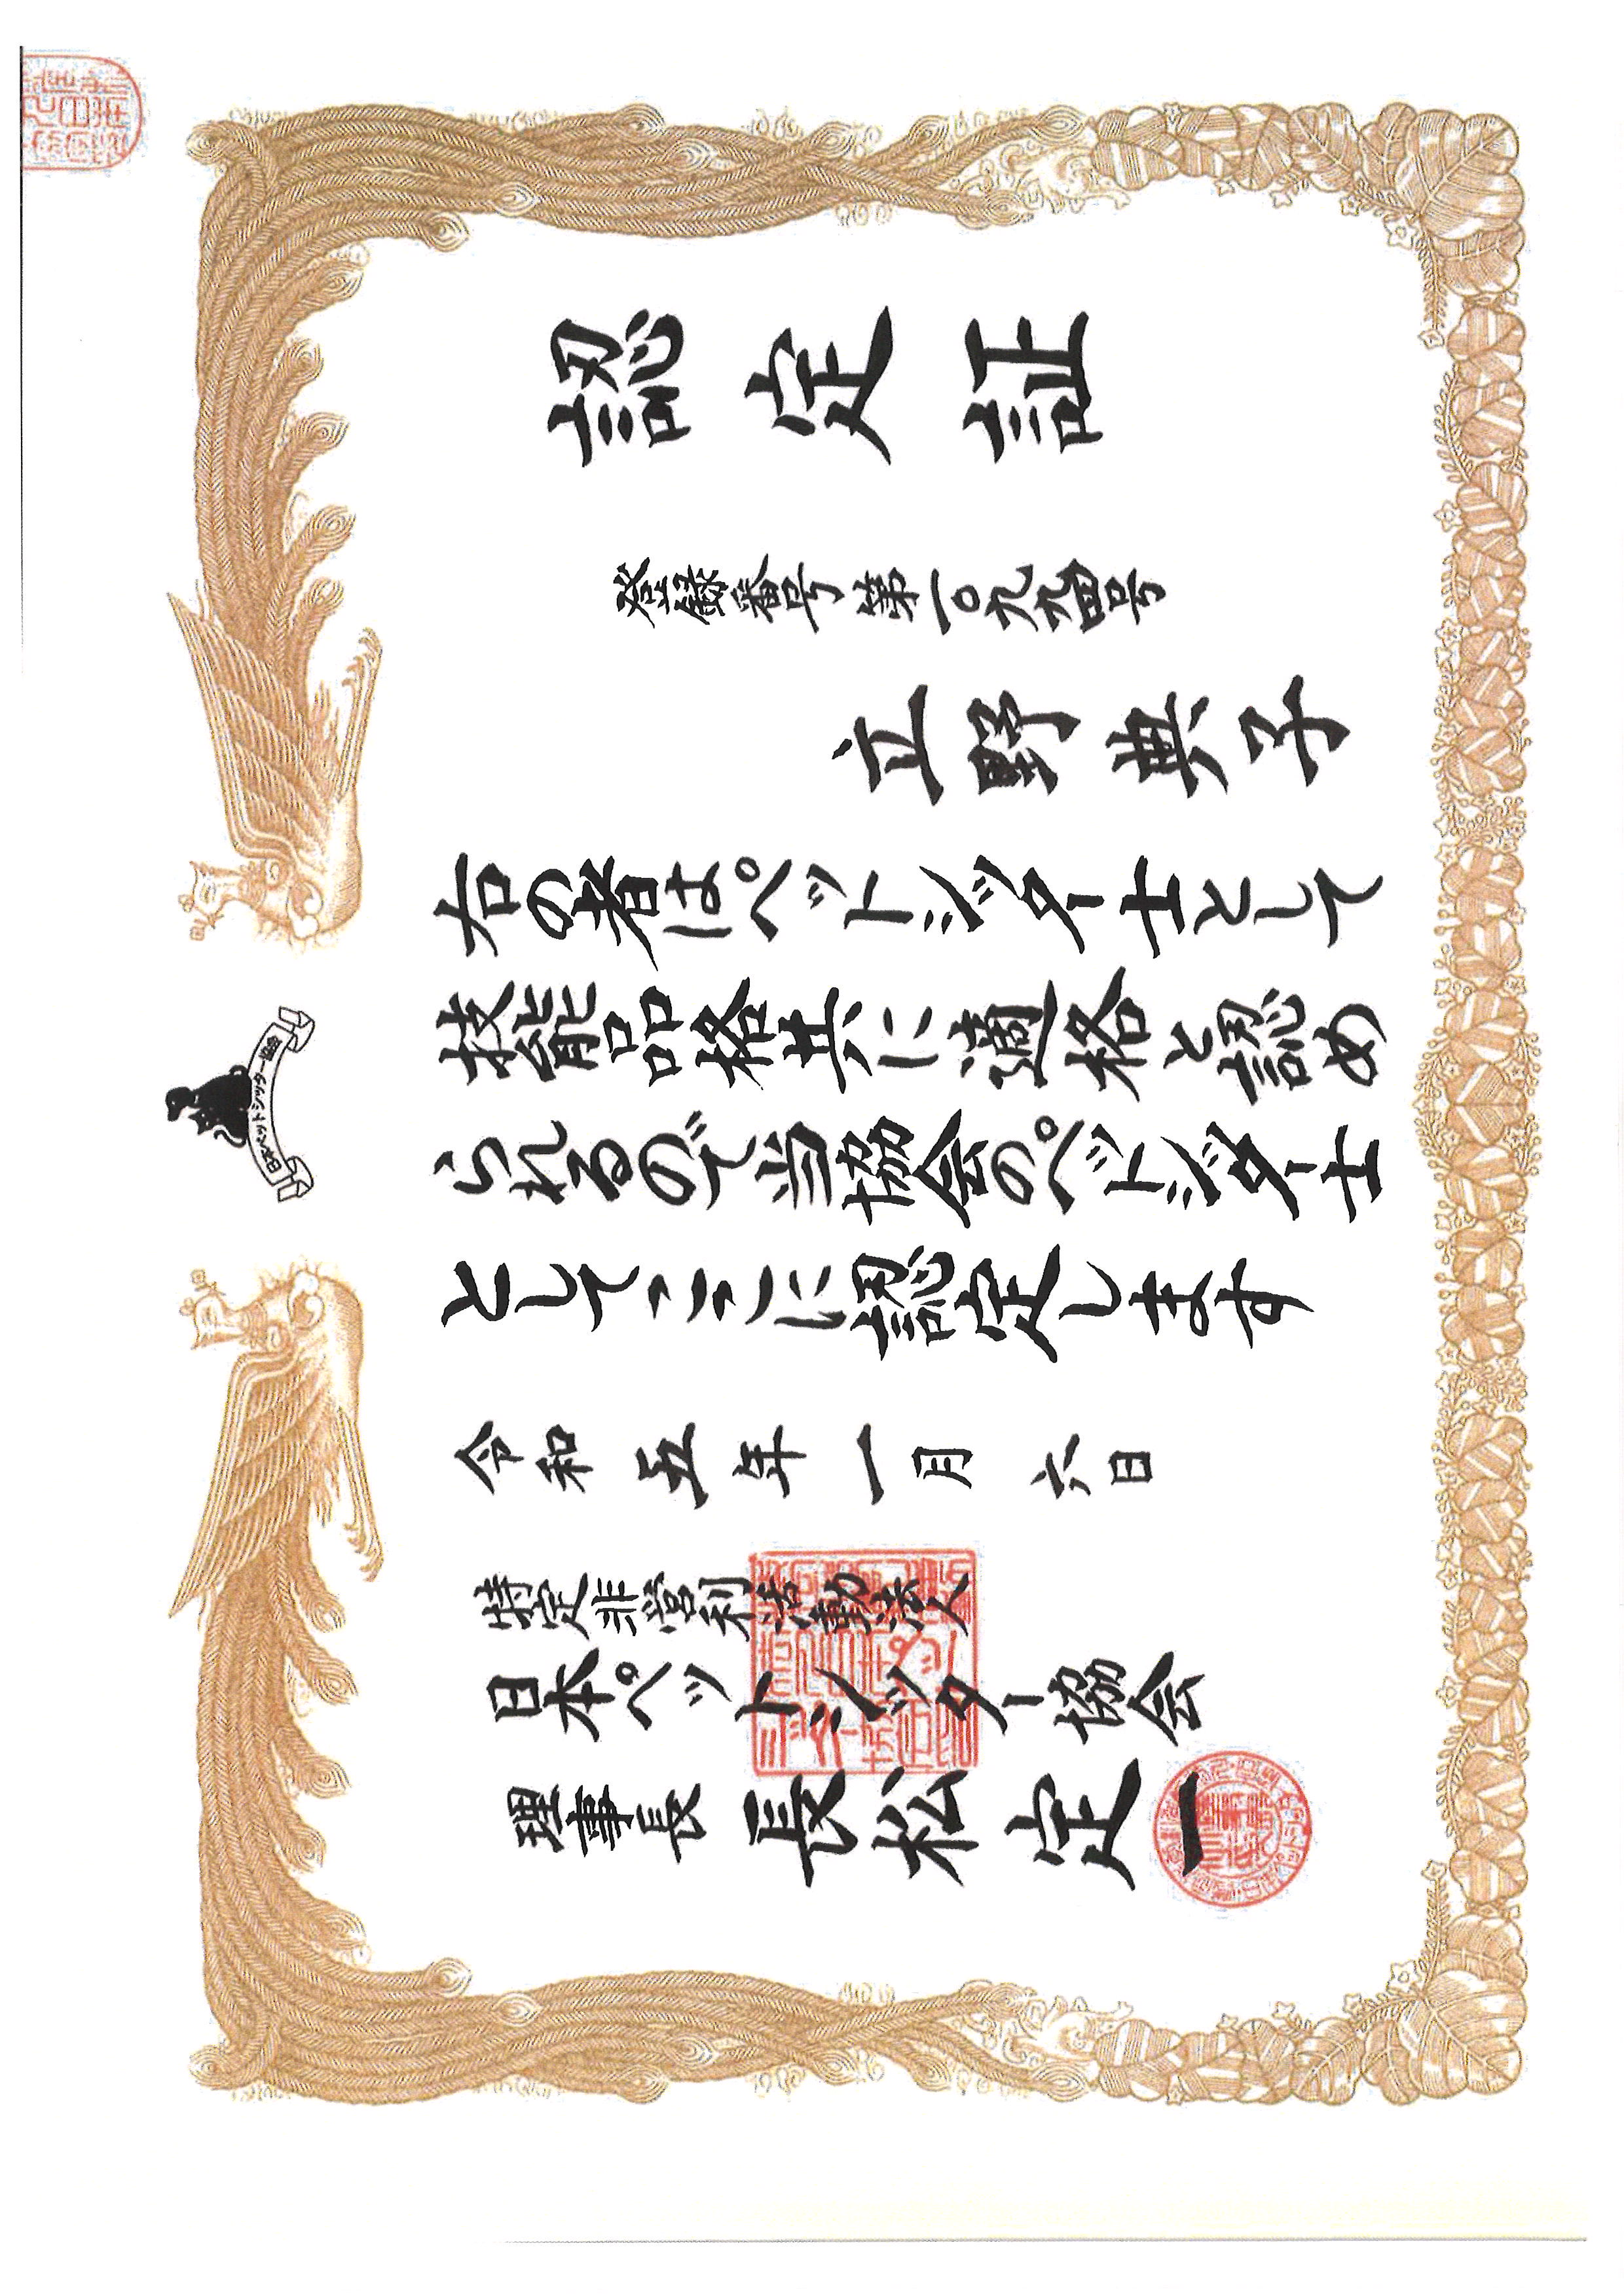 日本ペットシッター協会
認定証
登録番号第一〇九九四号
立野典子
右の者はペットシッター士として
技能品格共に適格と認め
られるので当協会のペットシッター士
としてここに認定します
令和五年一月六日
特定非営利活動法人
日本ペットシッター協会
理事長 長松定一